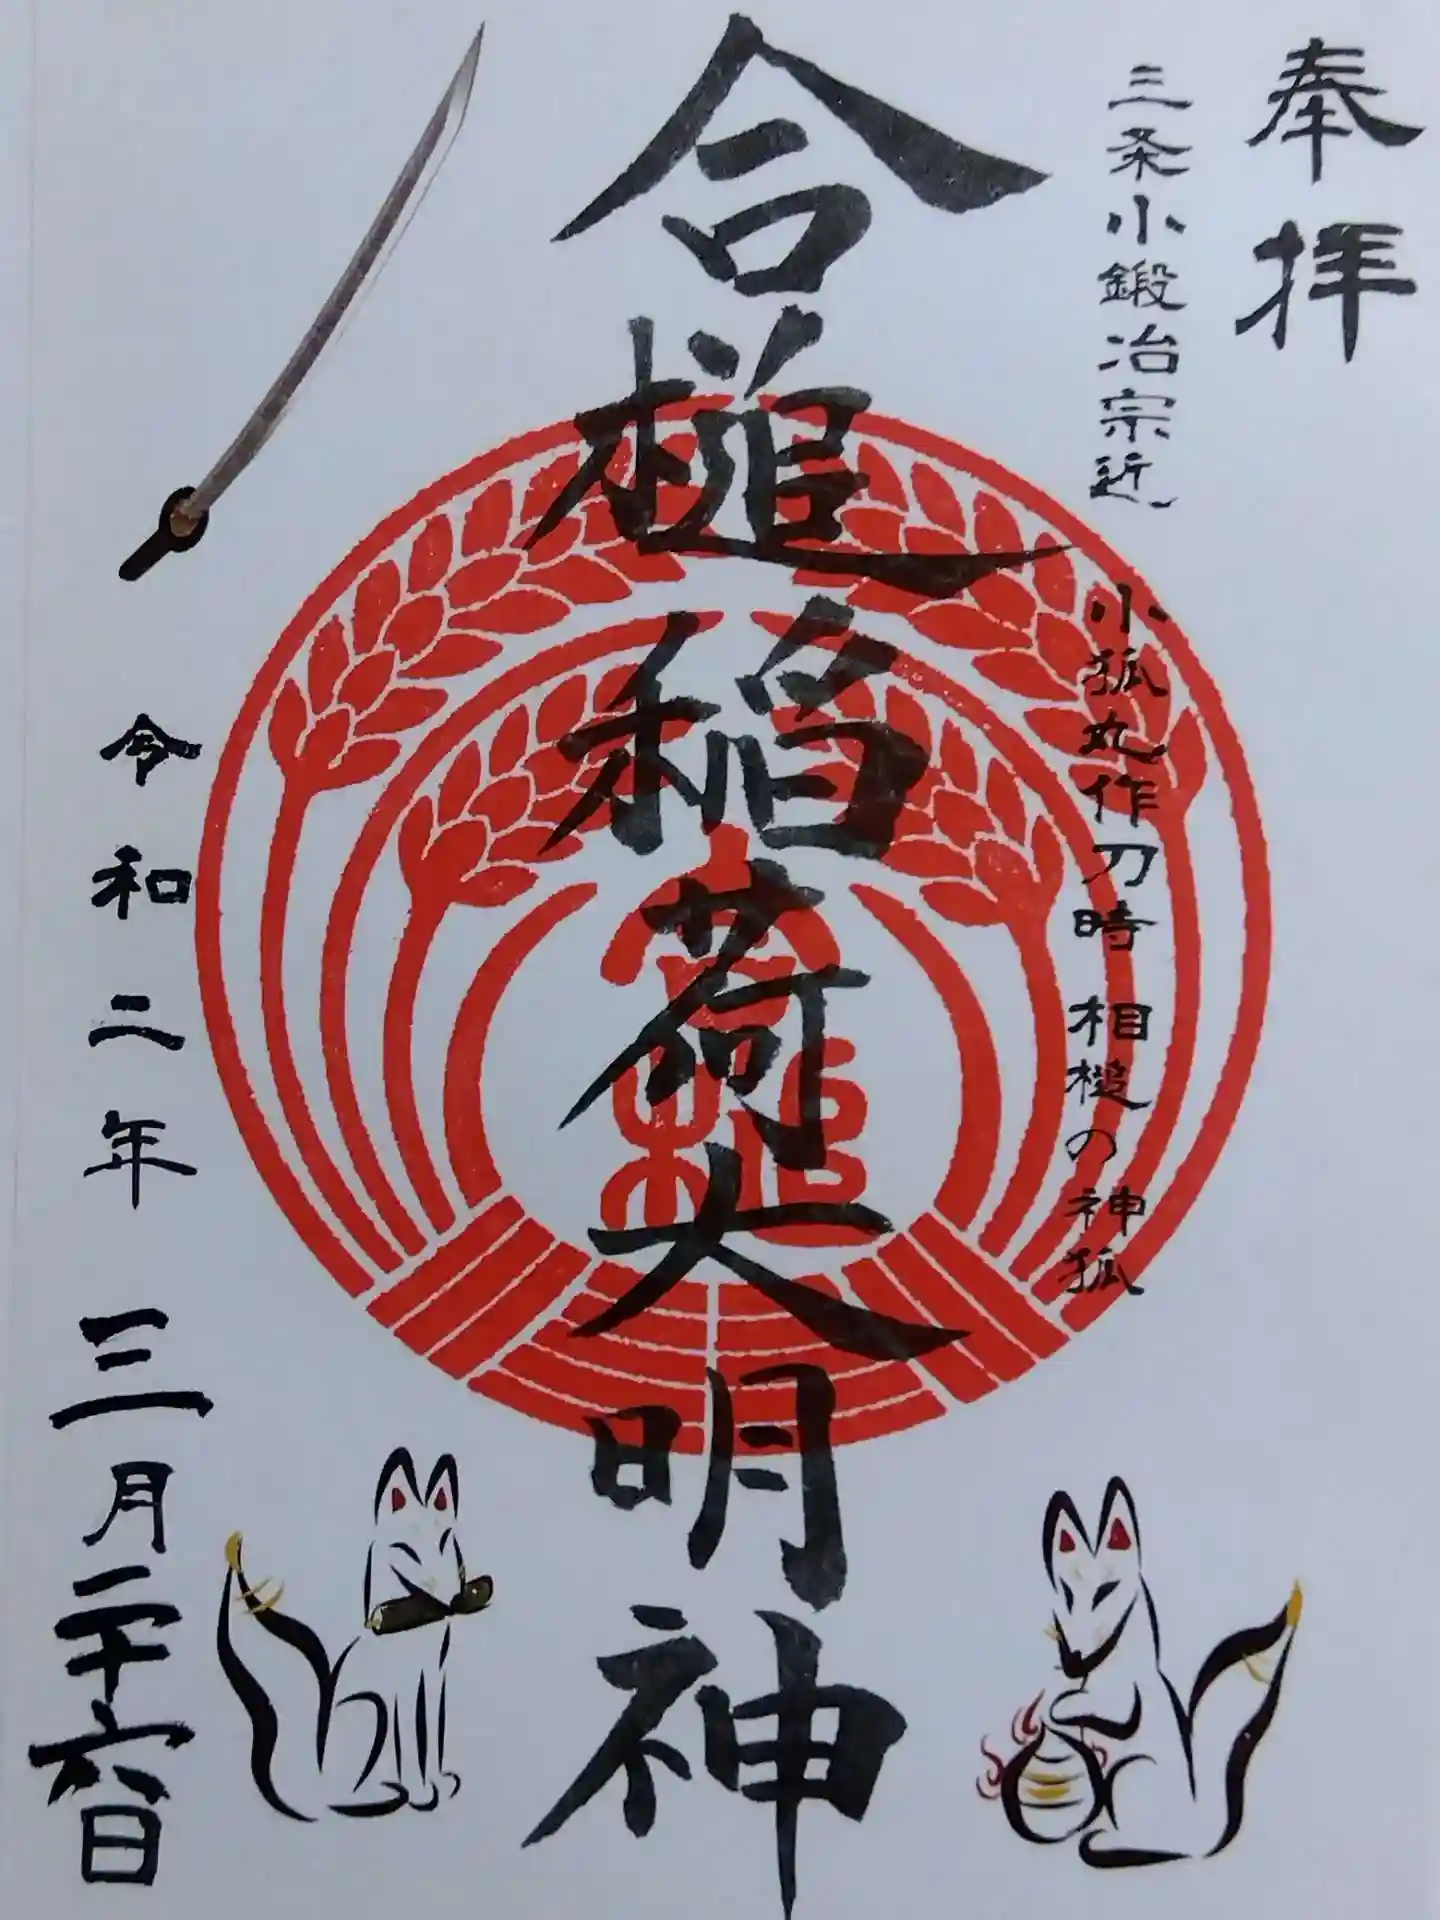 奉拝
三条小鍛冶宗近
小狐丸作刀時 相槌の神狐
合槌稲荷大明神
令和二年 三月二十六日